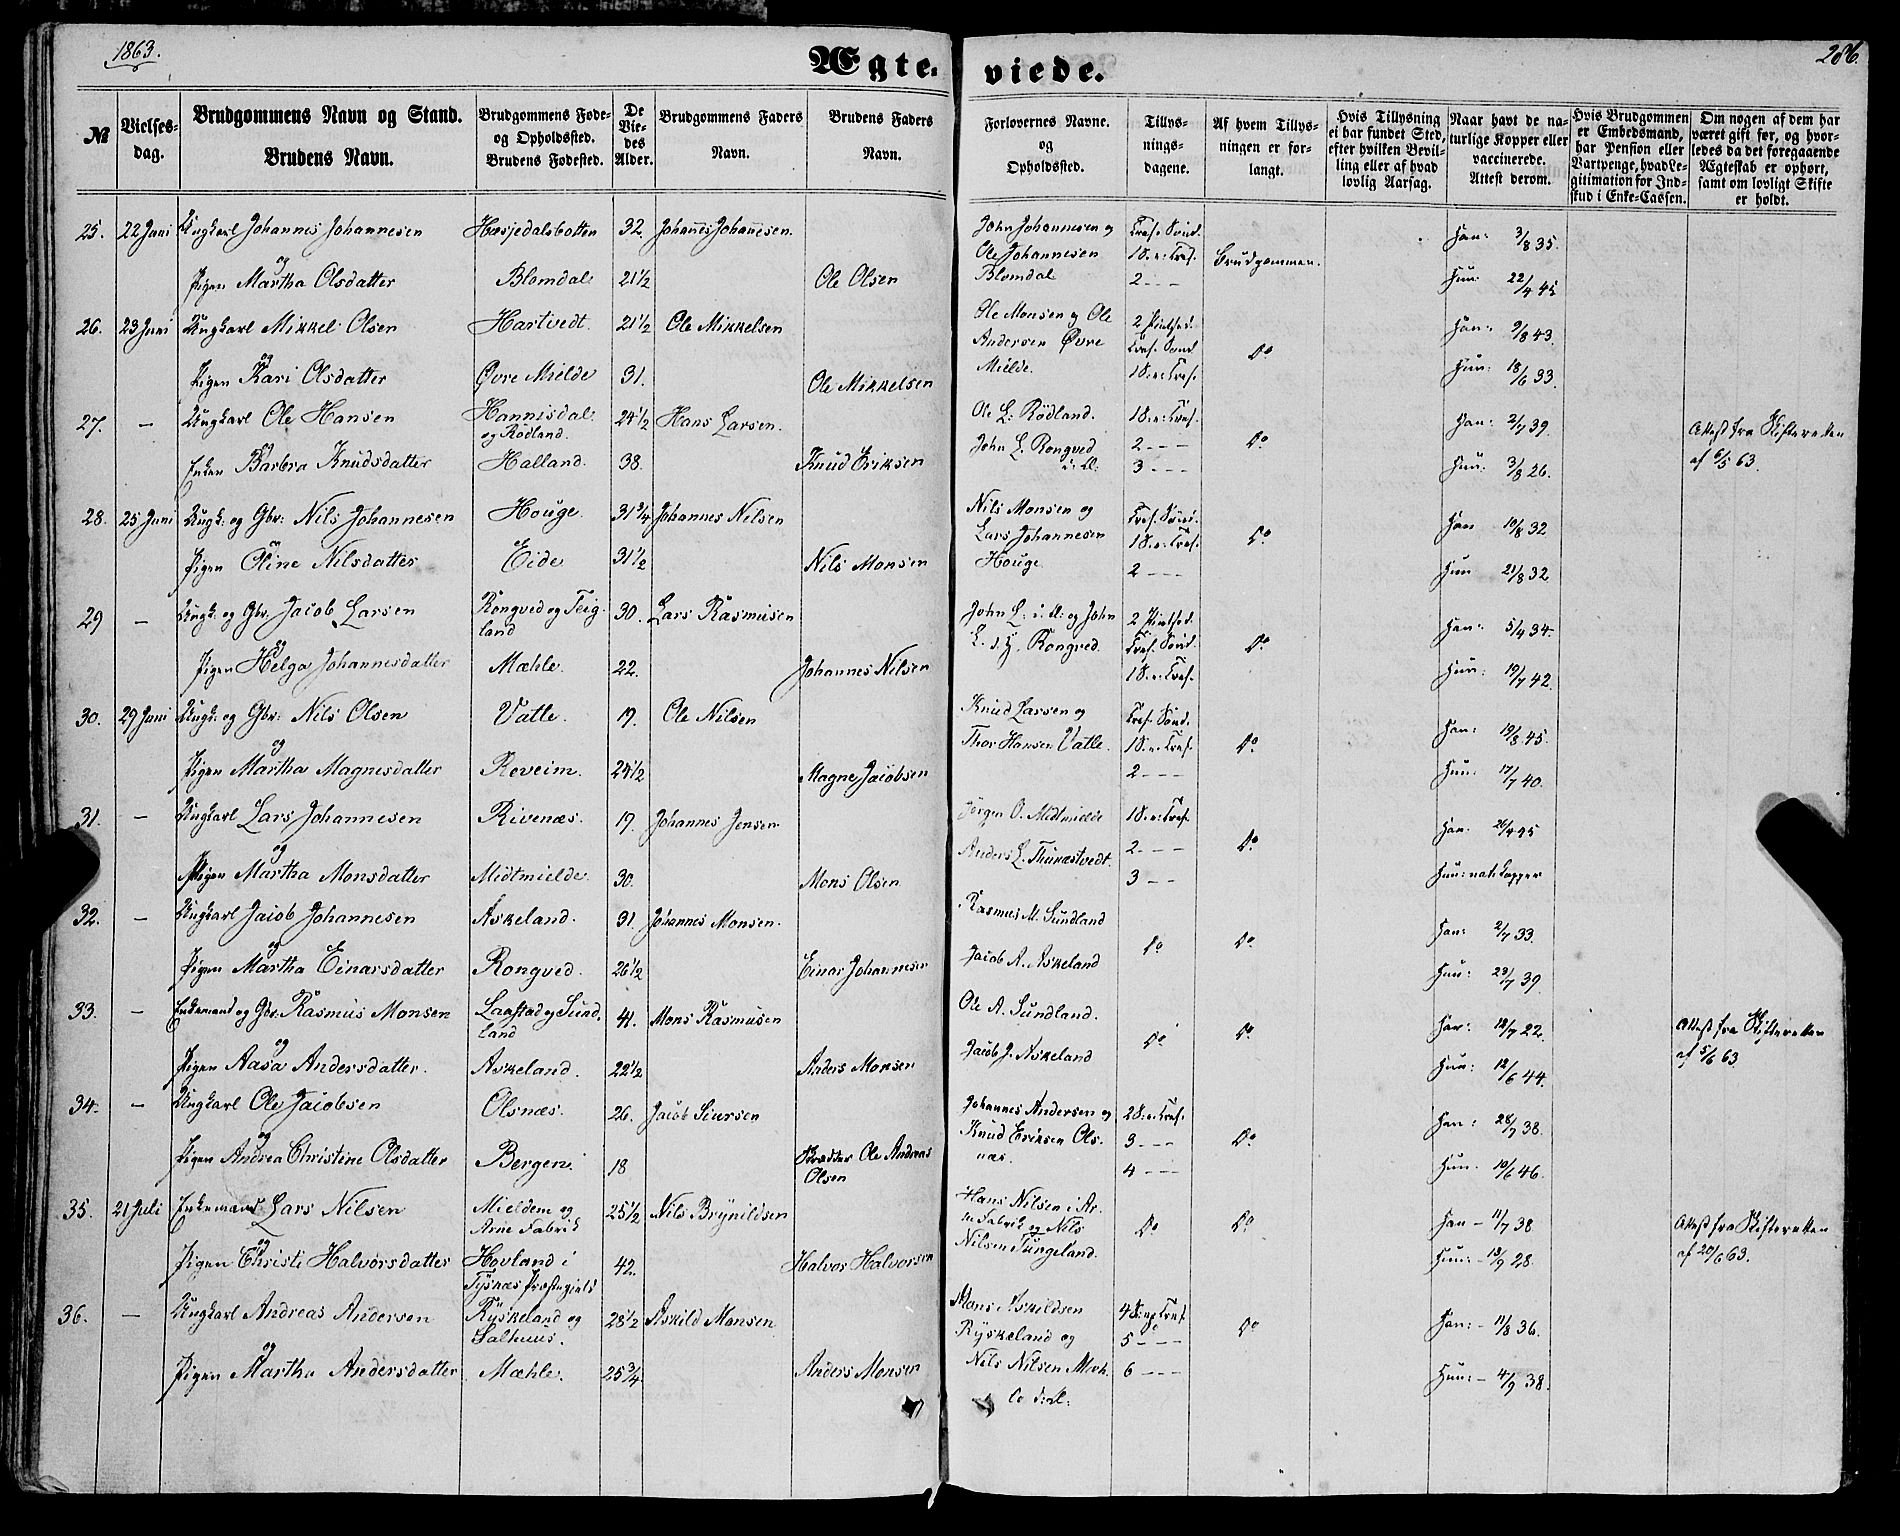 1863.
286.
Ægteviede.
№
Vielsesdag.
Brudgommens Navn og Stand.
Brudens Navn.
Brudgommens Føde- og Opholdssted.
Brudens Fødested.
De Viedes Alder.
Brudgommens Faders Navn.
Brudens Faders Navn.
Forlovernes Navne og Opholdssted.
Tillysningsdagene.
Af hvem Tillysningen er forlangt.
Hvis Tillysning ei har fundet Sted, efter hvilken Bevilling eller af hvad lovlig Aarsag.
Naar havt de naturlige Kopper eller vaccinerede. Attest derom.
Hvis Brudgommen er Embedsmand, har Pension eller Vartpenge, hvad Legitimation for Indskud i Enke-Cassen.
Om nogen af dem har været gift før, og hvorledes da det foregaaende Ægteskab er ophørt, samt om lovligt Skifte er holdt.
25. 22 Juni Ungkarl Johannes Johannesen Hæsjedalsbotten 32. Johannes Johannesen. John Johannesen og Ole Johannesen Blomdal Tref. Sønd. 1 S. e: Tref. 2 - - - Brudgommen. Han: 3/8 35.
og
Pigen Martha Olsdatter Blomdal 21 1/2 Ole Olsen Hun: 22/4 45
26. 23 Juni Ungkarl Mikkel Olsen Hartvedt. 21 1/2 Ole Mikkelsen Ole Monsen og Ole Andersen Øvre Mielde. 2 Pintsed. Tref. Sønd 1 S. e: Tref. Do Han: 9/8 43.
og
Pigen Kari Olsdatter Øvre Mielde 31. Ole Mikkelsen Hun: 18/6 33.
27. — Ungkarl Ole Hansen Hannisdal og Rødland. 24 1/2 Hans Larsen. Ole L: Rødland. John L. Rongved 1 S. e: Tref. 2 - - - 3 - - - Do Han: 2/7 39. Attest fra Skifteretten af 6/5 63.
og
Enken Barbra Knudsdatter Halland. 38. Knud Eriksen Hun: 3/8 26.
28. 25 Juni Ungk: og Gbr: Nils Johannesen Houge 31 3/4 Johannes Nilsen Nils Monsen og Lars Johannesen Houge Tref. Sønd. 1 S. e: Tref. 2 - - - Do Han 10/8 32
og
Pigen Oline Nilsdatter Eide 31 1/2 Nils Monsen Hun 21/8 32
29 — Ungk: og Gbr. Jacob Larsen Rongved og Teigland 30. Lars Rasmusen John L: og John L. Rongved. 2 Pintsed. Tref. Sønd. 1 S. e: Tref. Do Han: 5/4 34.
og
Pigen Helga Johannesdatter Mæhle. 22. Johannes Nilsen Hun: 19/7 42.
30. 29 Juni Ungk: og Gbr: Nils Olsen Vatle. 19. Ole Nilsen Knud Larsen og Thor Hansen Vatle. Tref. Sønd. 1 S. e: Tref. 2 - - - Do Han: 19/8 45.
og
Pigen Martha Magnesdatter Reveim. 24 1/2 Magne Jacobsen Hun: 17/7 40.
31. — Ungkarl Lars Johannesen Rivenæs. 19. Johannes Jensen Jørgen O. Midtmielde Anders L. Thunæstvedt. 1 S. e: Tref. 2. - - - 3 - - Do Han: 26/4 45
og
Pigen Martha Monsdatter Midtmielde. 30. Mons Olsen Hun: nat: Kopper
32. — Ungkarl Jacob Johannesen Askeland. 31. Johannes Monsen. Rasmus M. Sundland Jacob A. Askeland Do Do Han: 2/7 33.
og
Pigen Martha Einarsdatter Rongved. 26 1/2 Einar Johannesen Hun: 23/7 39.
33. — Enkemand og Gbr. Rasmus Monsen Laastad og Sundland 41. Mons Rasmusen Ole A. Sundland. Jacob J. Askeland Do Do Han: 18/7 22. Attest fra Skifteretten af 5/6 63.
og
Pigen Aasa Andersdatter. Askeland. 22 1/2 Anders Monsen Hun: 12/6 44.
34. — Ungkarl Ole Jacobsen Olsnæs. 26. Jacob Siursen Johannes Andersen og Knud Eriksen Olsnæs. 2 S. e: Tref. 3 - - - 4 - - - Do Han: 28/7 38.
og
Pigen Andrea Christine Olsdatter Bergen. 18 Skrædder Ole Andreas Olsen Hun: 10/6 46.
35. 21 Juli Enkemand Lars Nilsen Mieldem og Arne Fabrik 25 1/2 Nils Brynildsen Hans Nilsen i Arne Fabrik og Nils Nilsen Tungeland. Do Do Han – 11/7 38 Attest fra Skifteretten af 20/6 63.
og
Pigen Christi Halvorsdatter Hovland i Tysnæs Præstegield 42. Halvor Halvorsen Hun: – 13/9 28.
36. — Ungkarl Andreas Andersen Ryskeland og Salhuus. 28 1/2 Askild Monsen Mons Askildsen Ryskeland og Nils Nilsen Mæhle 4 S: e: Tref. 5 - - - 6 - - - Do Han: – 11/8 36.
og
Pigen Martha Andersdatter Mæhle. 25 3/4 Anders Monsen Hun: – 4/9 38.